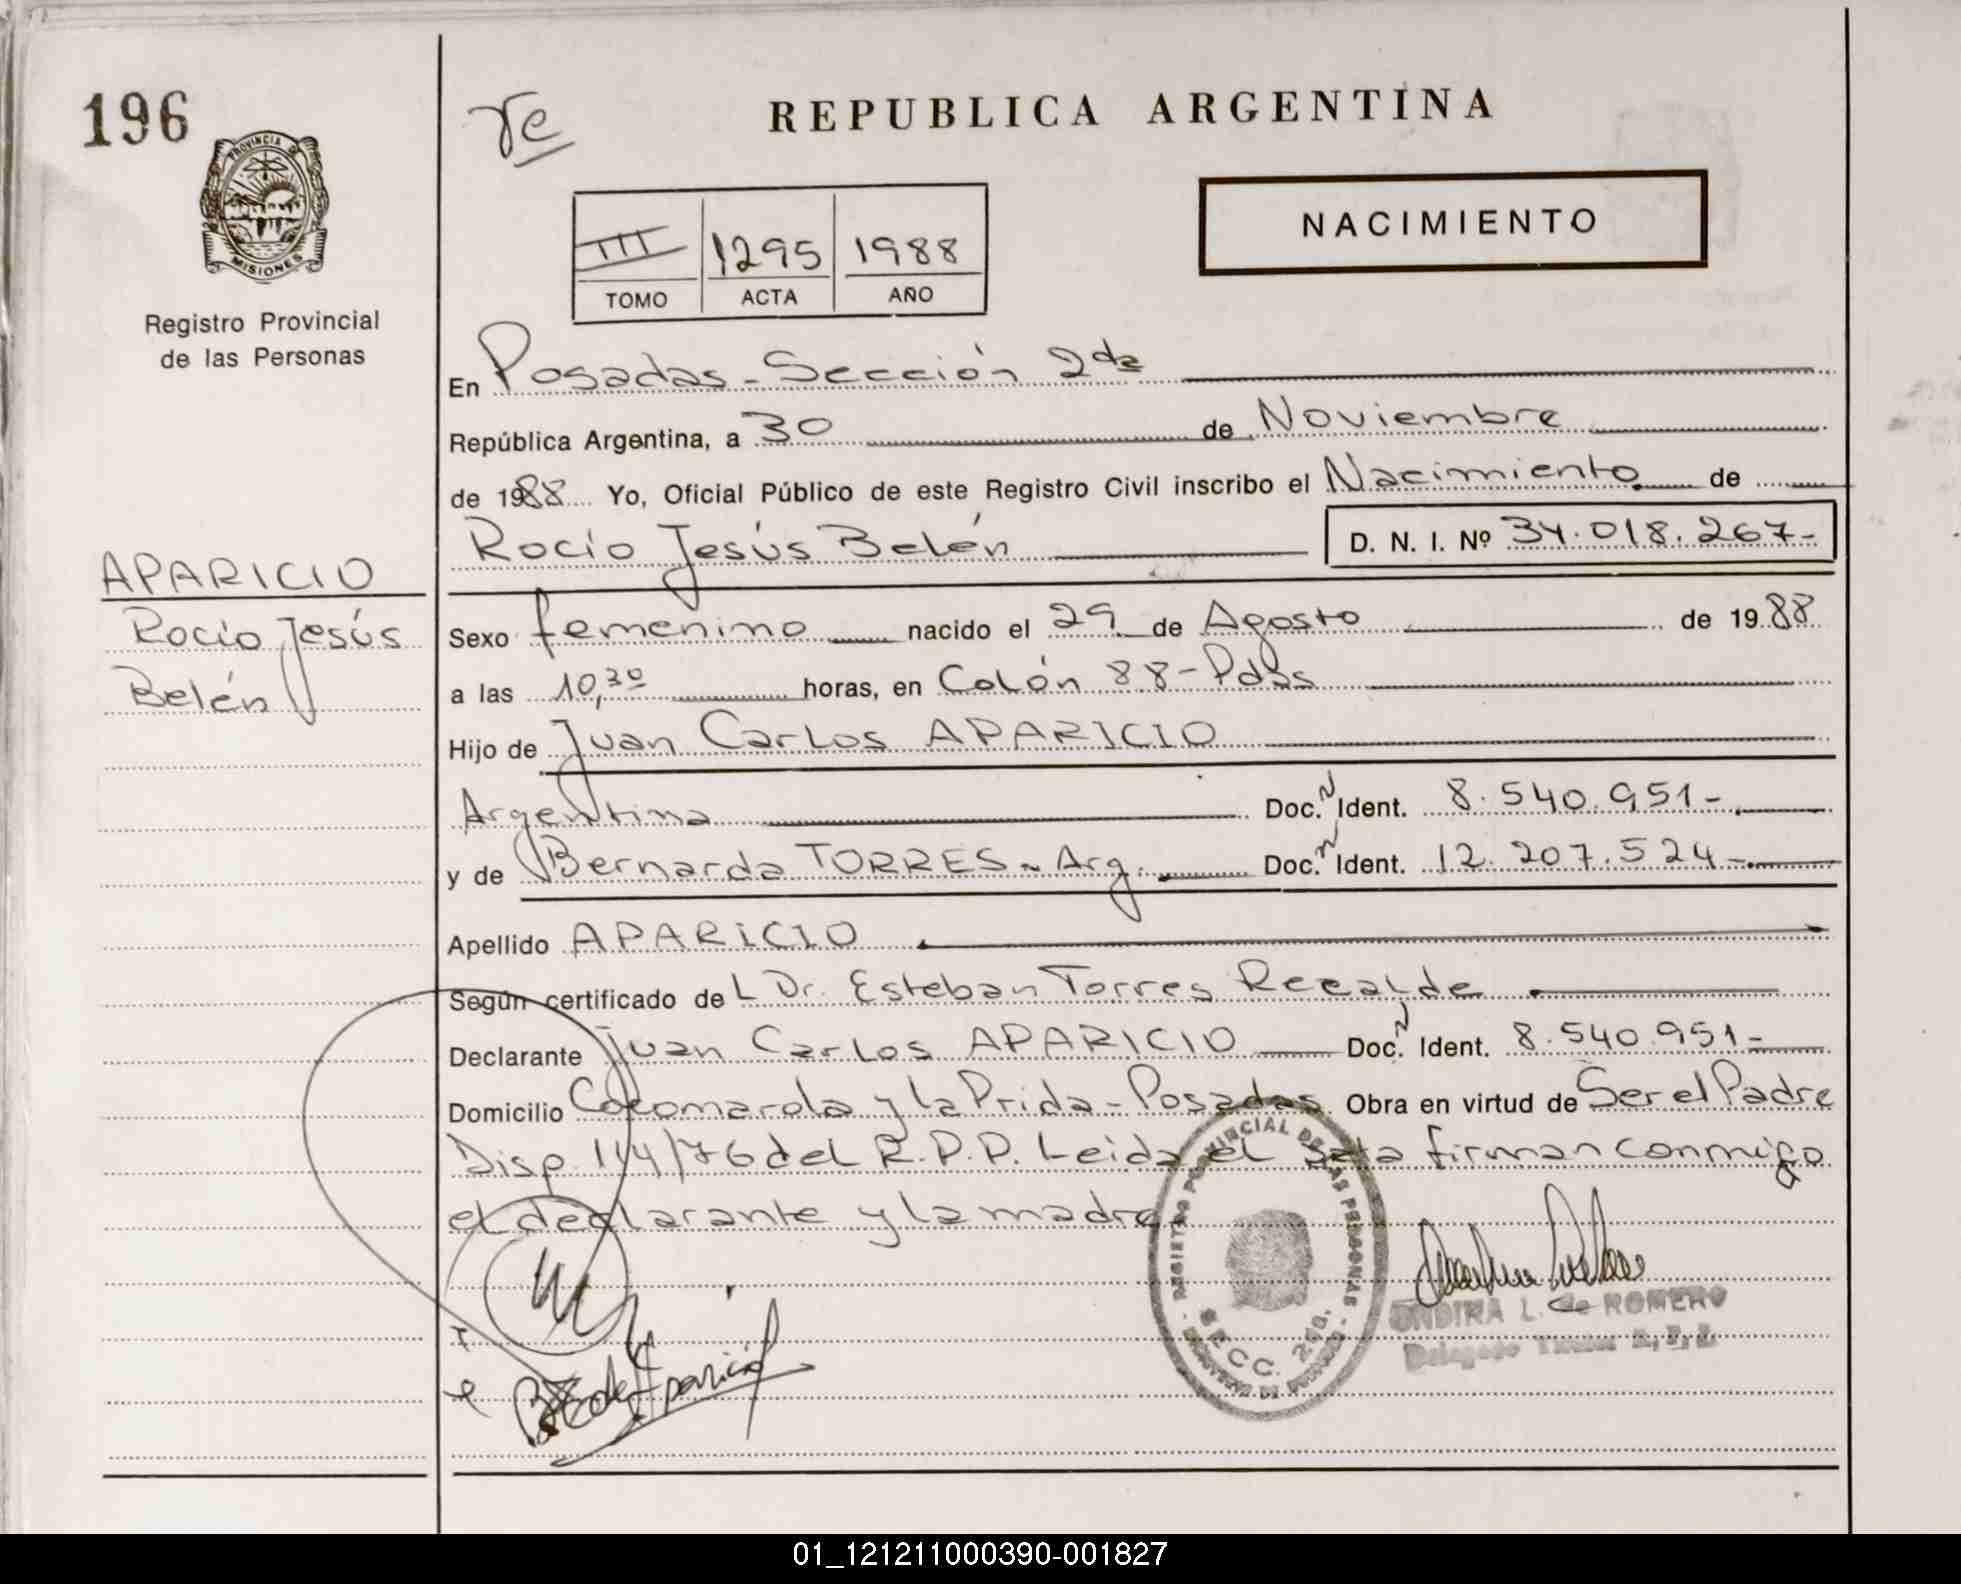 196
PROVINCIA DE
MISIONES
Registro Provincial
de las Personas
APARICIO
Rocío Jesús
Belén
REPUBLICA ARGENTINA
NACIMIENTO
III 1295 1988
TOMO ACTA AÑO
En Posadas - Sección 2da
República Argentina, a 30 de Noviembre
de 1988 Yo, Oficial Público de este Registro Civil inscribo el Nacimiento de
Rocío Jesús Belén D. N. I. Nº 34.018.267-
Sexo femenino nacido el 29 de Agosto de 1988
a las 10,30 horas, en Colón 88 - Pdas
Hijo de Juan Carlos APARICIO
Argentina Doc. Ident. 8.540.951-
y de Bernarda TORRES - Arg. Doc. Ident. 12.207.524-
Apellido APARICIO
Según certificado del Dr. Esteban Torres Recalde
Declarante Juan Carlos APARICIO Doc. Ident. 8.540.951-
Domicilio Cocomarola y la Prida - Posadas Obra en virtud de Ser el Padre
Disp. 114/76 del R.P.P. Leida el acta firman conmigo
el declarante y la madre
REGISTRO PROVINCIAL DE LAS PERSONAS
SECC. 2da.
ONDINA L. de ROMERO
Delegado Titular
01_121211000390-001827